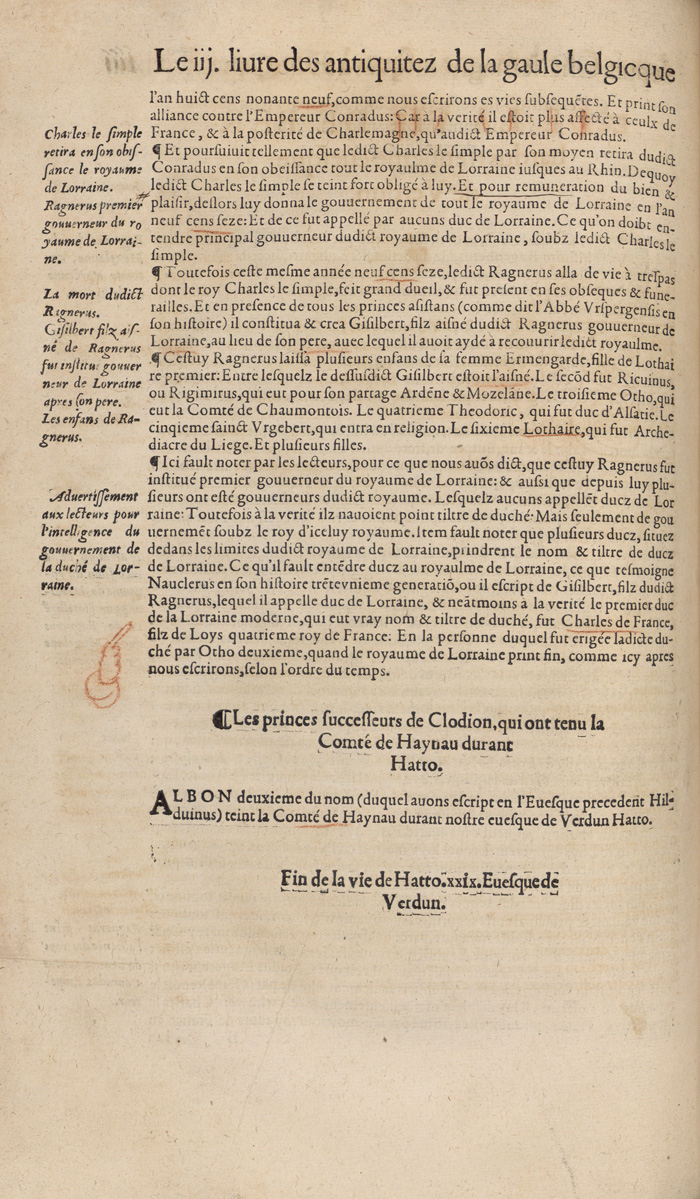 Le iij. liure des antiquitez de la gaule belgicque
l'an huict cens nonante neuf, comme nous escrirons es vies subsequētes. Et print son
alliance contre l'Empereur Conradus: Car à la verité il estoit plus affecté à ceulx de
France, & à la posterité de Charlemagne, qu'audict Empereur Conradus.
¶ Et poursuiuit tellement que ledict Charles le simple par son moyen retira dudict
Conradus en son obeissance tout le royaulme de Lorraine iusques au Rhin. Dequoy
ledict Charles le simple se teint fort obligé à luy. Et pour remuneration du bien &
plaisir, deslors luy donna le gouuernement de tout le royaume de Lorraine en l'an
neuf cens seze: Et de ce fut appellé par aucuns duc de Lorraine. Ce qu'on doibt en-
tendre principal gouuerneur dudict royaume de Lorraine, soubz ledict Charles le
simple.
¶ Toutefois ceste mesme année neuf cens seze, ledict Ragnerus alla de vie à trespas
dont le roy Charles le simple, feit grand dueil, & fut present en ses obseques & fune-
railles. Et en presence de tous les princes asistans (comme dit l'Abbé Vrspergensis en
son histoire) il constitua & crea Gisilbert, filz aisné dudict Ragnerus gouuerneur de
Lorraine, au lieu de son pere, auec lequel il auoit aydé a recouurir ledict royaulme.
¶ Cestuy Ragnerus laissa plusieurs enfans de sa femme Ermengarde, fille de Lothai
re premier: Entre lesquelz le dessusdict Gisilbert estoit l'aisné. Le secōd fut Ricuinus,
ou Rigimirus, qui eut pour son partage Ardēne & Mozelane. Le troisieme Otho, qui
eut la Comté de Chaumontois. Le quatrieme Theodoric, qui fut duc d'Alsatie. Le
cinqieme sainct Vrgebert, qui entra en religion. Le sixieme Lothaire, qui fut Arche-
diacre du Liege. Et plusieurs filles.
¶ Ici fault noter par les lecteurs, pour ce que nous auōs dict, que cestuy Ragnerus fut
institué premier gouuerneur du royaume de Lorraine: & aussi que depuis luy plu-
sieurs ont esté gouuerneurs dudict royaume. Lesquelz aucuns appellēt ducz de Lor
raine: Toutefois à la verité ilz nauoient point tiltre de duché. Mais seulement de gou
uernemēt soubz le roy d'iceluy royaume. Item fault noter que plusieurs ducz, situez
dedans les limites dudict royaume de Lorraine, prindrent le nom & tiltre de ducz
de Lorraine. Ce qu'il fault entēdre ducz au royaulme de Lorraine, ce que tesmoigne
Nauclerus en son histoire trētevnieme generatiō, ou il escript de Gisilbert, filz dudict
Ragnerus, lequel il appelle duc de Lorraine, & neātmoins à la verité le premier duc
de la Lorraine moderne, qui eut vray nom & tiltre de duché, fut Charles de France,
filz de Loys quatrieme roy de France: En la personne duquel fut erigée ladicte du-
ché par Otho deuxieme, quand le royaume de Lorraine print fin, comme icy apres
nous escrirons, selon l'ordre du temps.
Charles le simple
retira en son obeis-
sance le royaume
de Lorraine.
Ragnerus premier
gouuerneur du ro
yaume de Lorrai-
ne.
La mort dudict
Ragnerus.
Gisilbert filz ais-
né de Ragnerus
fut institué gouuer
neur de Lorraine
apres son pere.
Les enfans de Ra-
gnerus.
Aduertissement
aux lecteurs pour
l'intelligence du
gouuernement de
la duché de Lor-
raine.
¶ Les princes successeurs de Clodion, qui ont tenu la
Comté de Haynau durant
Hatto.
ALBON deuxieme du nom (duquel auons escript en l'Euesque precedent Hil-
duinus) teint la Comté de Haynau durant nostre euesque de Verdun Hatto.
Fin de la vie de Hatto. xxix. Euesque de
Verdun.